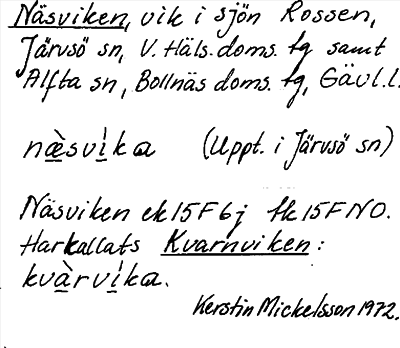 Näsviken, vik i sjön Rossen,
Järvsö sn, V. Häls. doms. tg samt
Alfta sn, Bollnäs doms. tg, Gävl.l.
næ̀svi̇ka (Uppt. i Järvsö sn)
Näsviken ek 15F6j tk 15F NO.
Har kallats Kvarnviken:
kvàrvi̇ka.
Kerstin Mickelsson 1972.